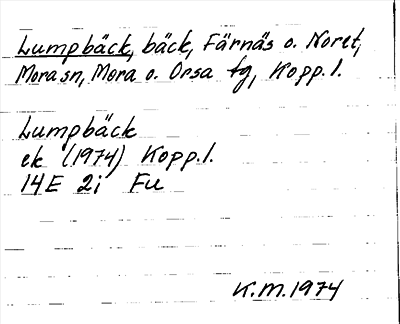 Lumpbäck, bäck, Färnäs o. Noret,
Mora sn, Mora o. Orsa tg, Kopp. l.
Lumpbäck
ek (1974) Kopp. l.
14E 2i Fu
K.M. 1974